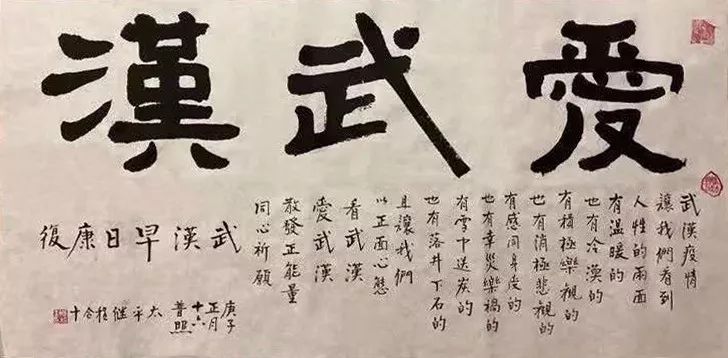 愛武漢
武漢疫情
讓我們看到
人性的兩面
有溫暖的
也有冷漠的
有積極樂觀的
也有消極悲觀的
有感同身受的
也有幸災樂禍的
有雪中送炭的
也有落井下石的
且讓我們
以正面心態
看武漢
愛武漢
散發正能量
同心祈願
武漢早日康復
庚子
正月
十六
普照
太平继程合十